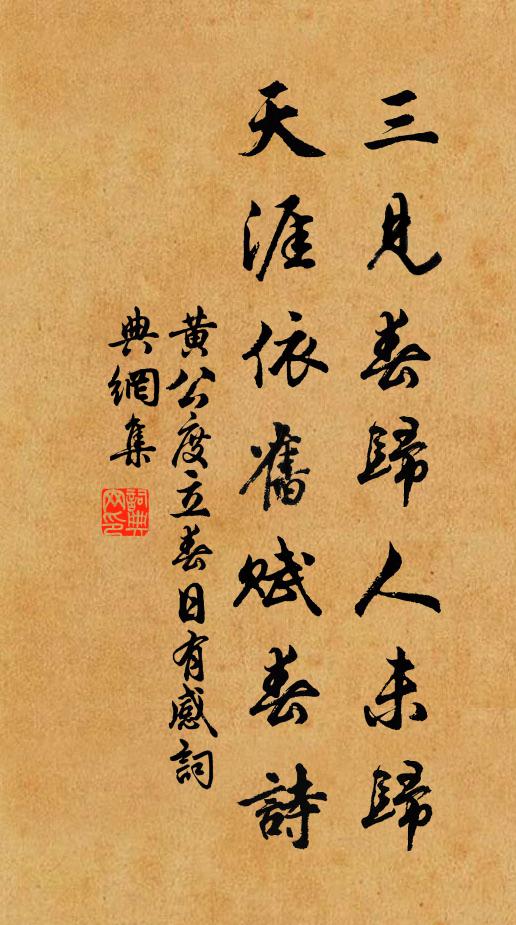 三見春歸人未歸
天涯依舊賦春詩
黃公度立春日有感詞
典網集
詞典網印